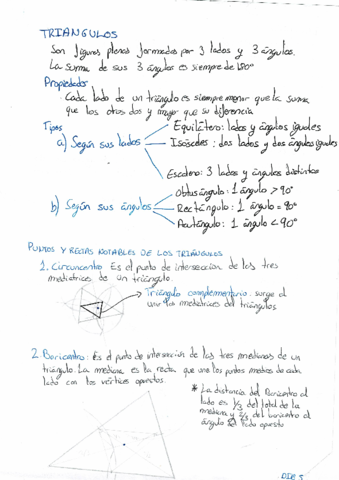 TRIANGULOS
Son figuras planas formadas por 3 lados y 3 ángulos.
La suma de sus 3 ángulos es siempre de 180º
Propiedades
Cada lado de un triángulo es siempre menor que la suma
que los otros dos y mayor que su diferencia
Tipos
a) Según sus lados
Equilátero: lados y ángulos iguales
Isósceles: dos lados y dos ángulos iguales
Escaleno: 3 lados y ángulos distintos
b) Según sus ángulos
Obtusángulo: 1 ángulo > 90º
Rectángulo: 1 ángulo = 90º
Acutángulo: 1 ángulo < 90º
PUNTOS Y RECTAS NOTABLES DE LOS TRIÁNGULOS
1. Circuncentro. Es el punto de intersección de las tres
mediatrices de un triángulo.
Triángulo complementario: surge al
unir las mediatrices del triángulos.
2. Baricentro: Es el punto de intersección de las tres medianas de un
triángulo. La mediana es la recta que une los puntos medios de cada
lado con los vértices opuestos.
* La distancia del Baricentro al
lado es 1/3 del total de la
mediana y 2/3 del baricentro al
ángulo lado opuesto